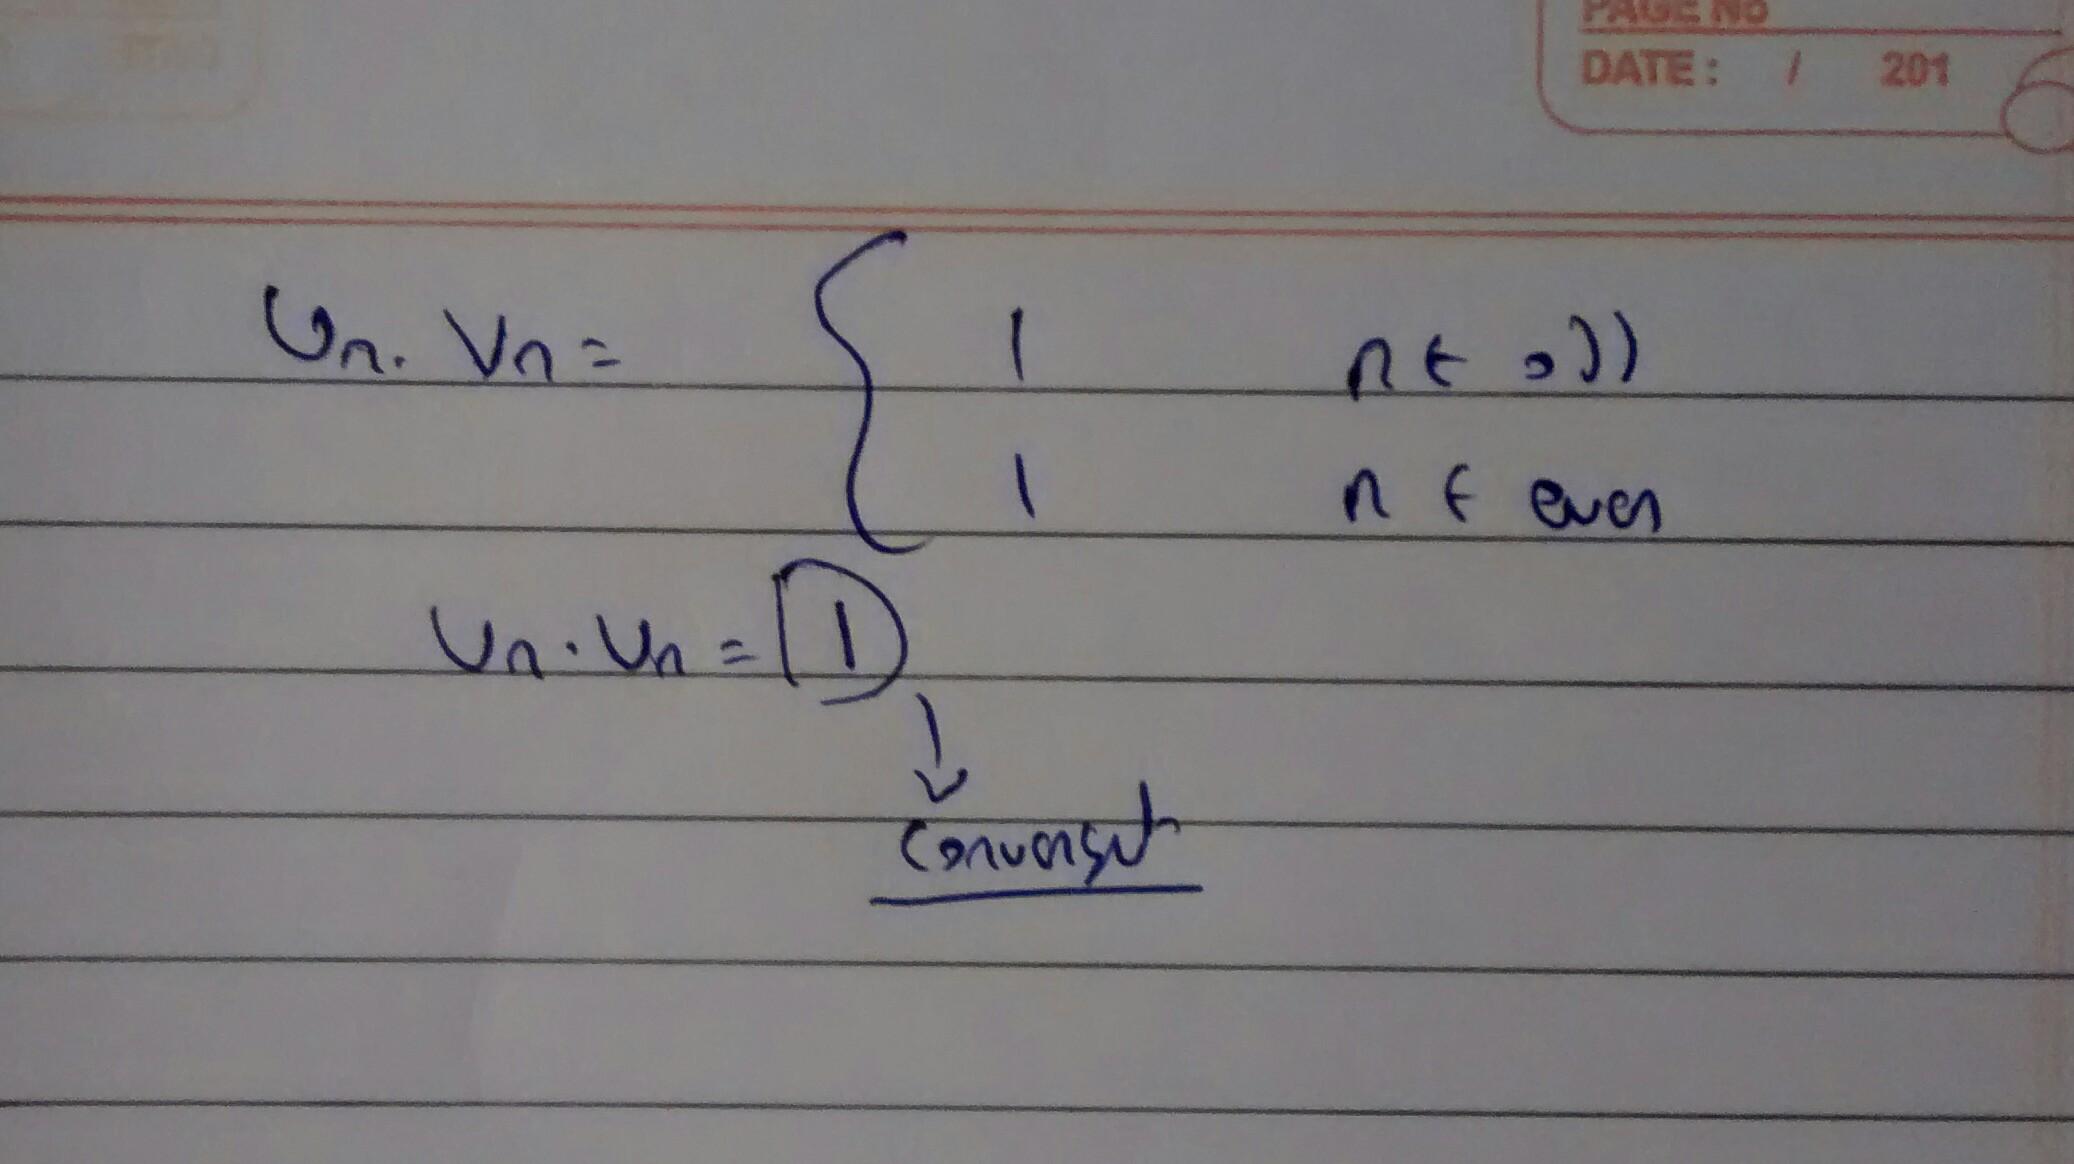 PAGE No
DATE: / 201
Un. Vn = { 1 n ∈ odd
1 n ∈ even
Un. Vn = 1
↓
Convergent